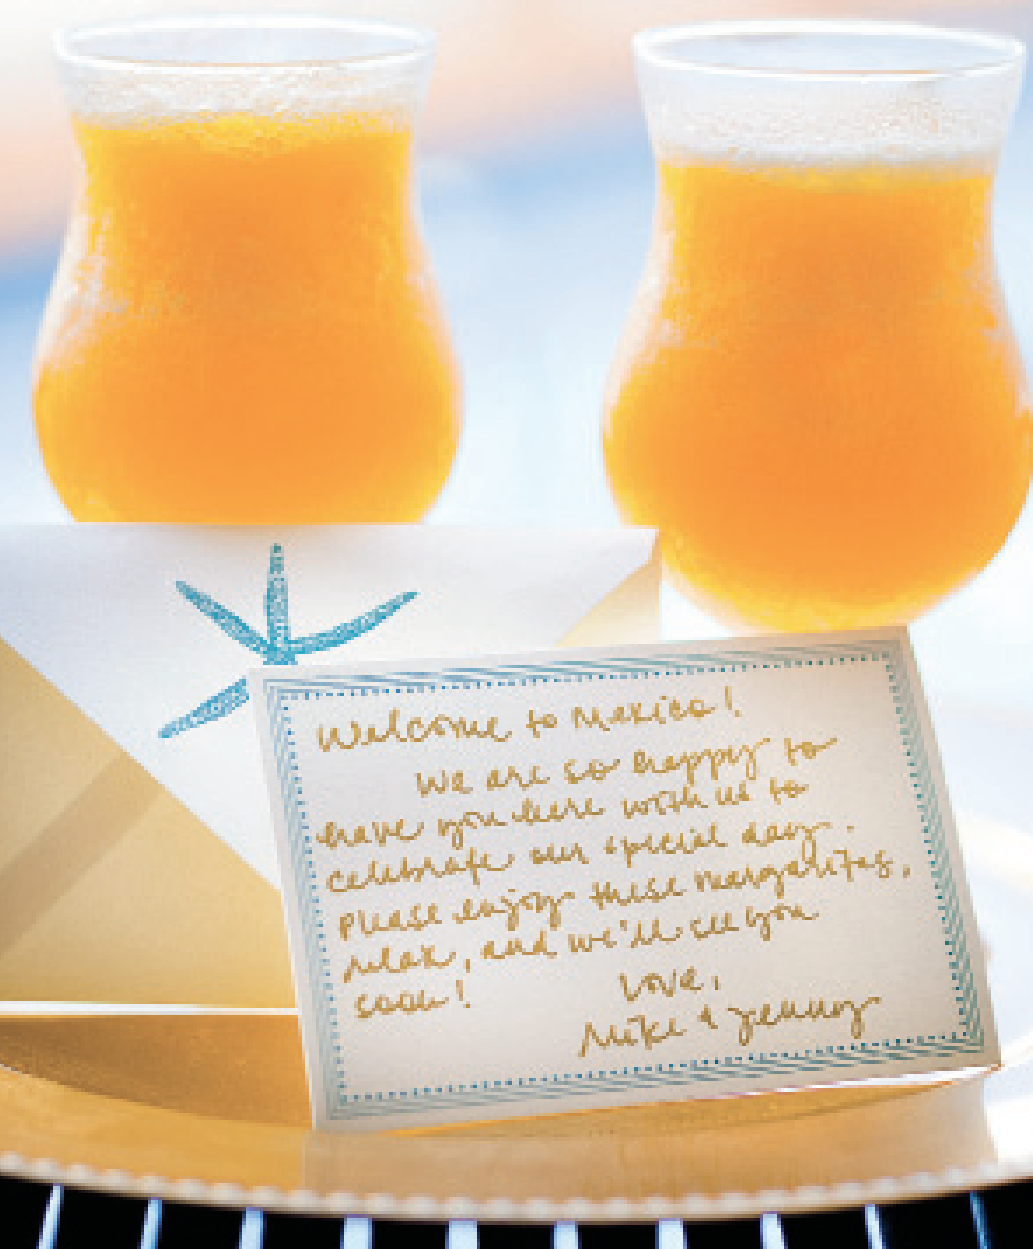 Welcome to Mexico!
We are so happy to
have you here with us to
celebrate our special day.
Please enjoy these margaritas,
relax, and we'll see you
soon!
Love,
Mike & Jenny